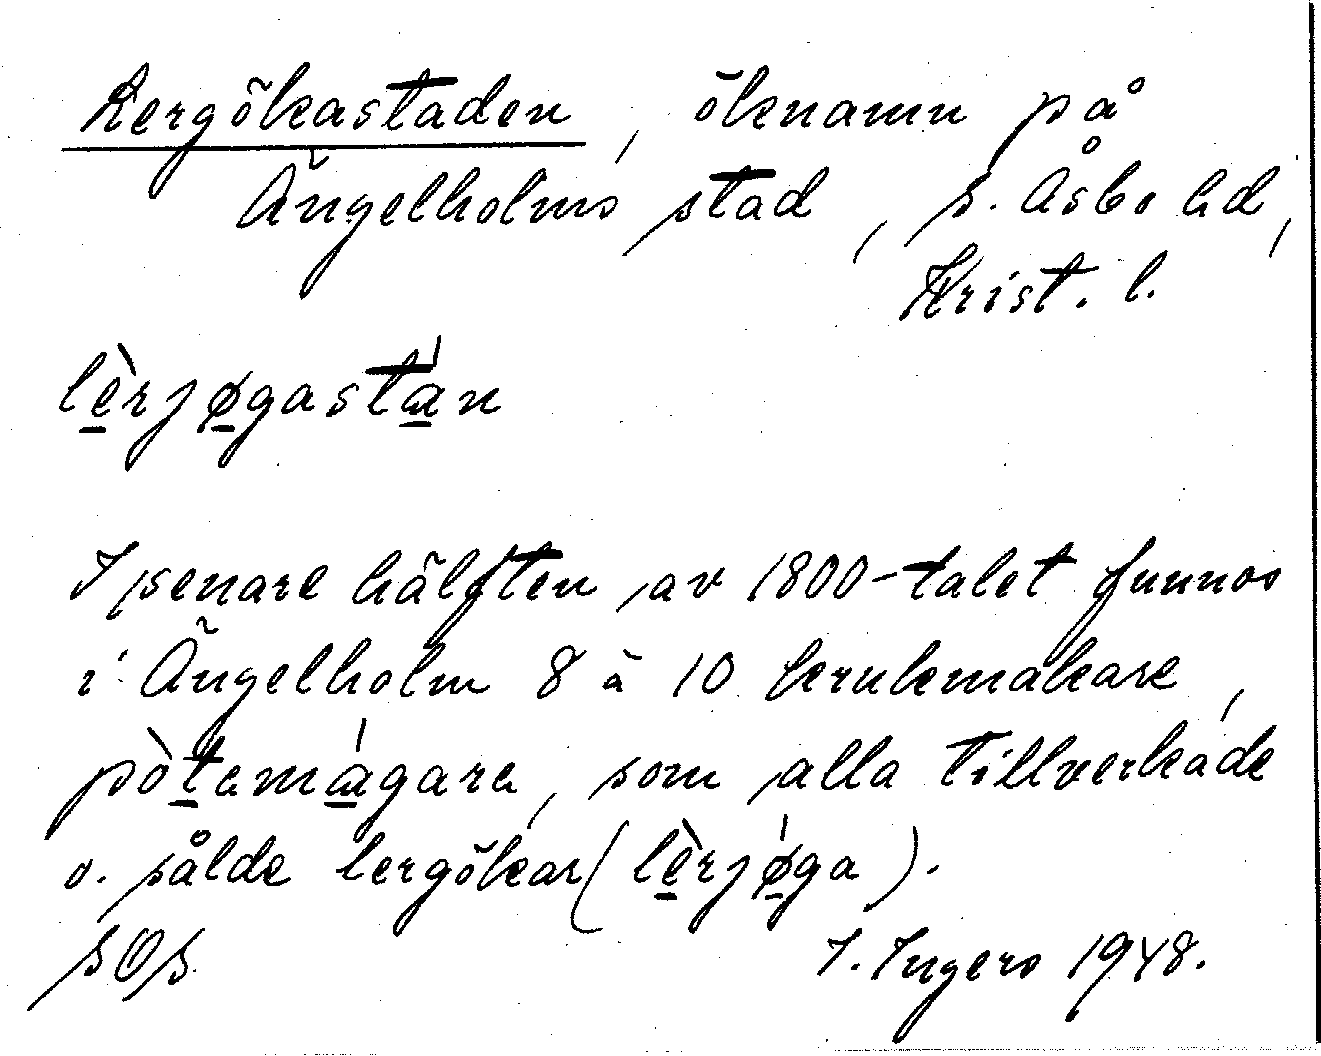 Lergökastaden, öknamn på
Ängelholms stad, S. Åsbo hd,
Krist. l.
lèrjøgastán
I senare hälften av 1800-talet funnos
i Ängelholm 8 à 10 krukemakare,
pòtamágara, som alla tillverkade
o. sålde lergökar (lèrjǿga).
SOS I. Ingers 1948.